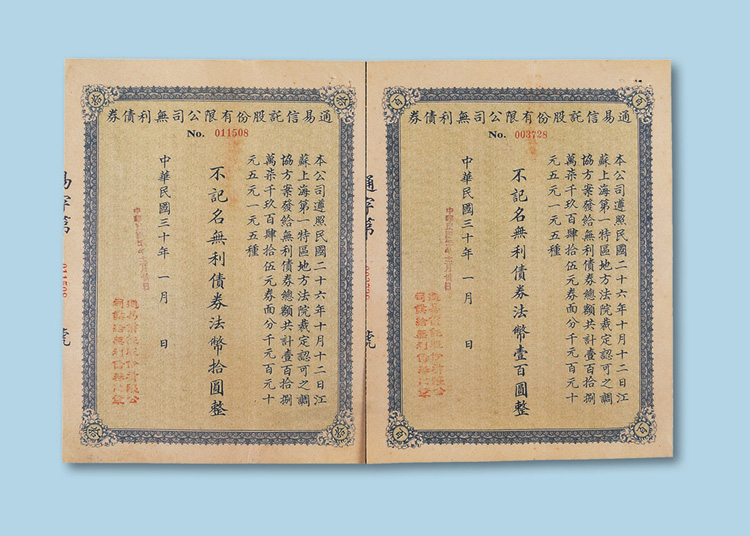 通易信託股份有限公司無利債券
No. 003728
本公司遵照民國二十六年十月十二日江
蘇上海第一特區地方法院裁定認可之調
協方案發給無利債券總額共計壹百拾捌
萬柒千玖百肆拾伍元券面分千元百元十
元五元一元五種
不記名無利債券法幣壹百圓整
中華民國三十年一月 日
百
百
百
百
通字第 號
通易信託股份有限公司無利債券
No. 011508
本公司遵照民國二十六年十月十二日江
蘇上海第一特區地方法院裁定認可之調
協方案發給無利債券總額共計壹百拾捌
萬柒千玖百肆拾伍元券面分千元百元十
元五元一元五種
不記名無利債券法幣拾圓整
中華民國三十年一月 日
拾
拾
拾
拾
易字第 號